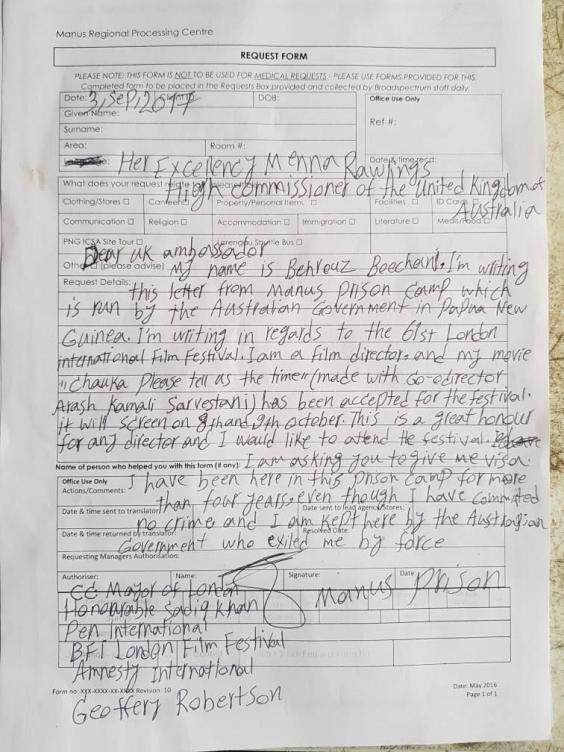 Manus Regional Processing Centre
REQUEST FORM
PLEASE NOTE: THIS FORM IS NOT TO BE USED FOR MEDICAL REQUESTS - PLEASE USE FORMS PROVIDED FOR THIS.
Completed form to be placed in the Requests Box provided and collected by Broadspectrum staff daily.
Date: 3, Sep, 2017
DOB:
Office Use Only
Given Name:
Ref #:
Surname:
Area:
Room #:
Date & time recd:
Her Excellency Menna Rawlings
What does your request relate
High commissioner of the united Kingdom of
Clothing/Stores
Canteen
Property/Personal Items
Facilities
ID Card
Australia
Communication
Religion
Accommodation
Immigration
Literature
PNG ICSA Site Tour
Shuttle Bus
Dear uk ambassador
(please advise)
my name is Behrouz Boochani. I'm writing
Request Details:
this letter from Manus prison camp which
is run by the Australian Government in Papua New
Guinea. I'm writing in regards to the 61st London
international Film Festival. I am a film director. and my movie
"chauka please tell as the time" (made with Co-director
Arash Kamali Sarvestani) has been accepted for the festival.
it will screen on 8th and 9th october. This is a great honour
for any director and I would like to attend the festival.
Name of person who helped you with this form (if any):
I am asking you to give me visa.
Office Use Only
Actions/Comments:
I have been here in this prison camp for more
than four years. even though I have committed
Date & time sent to translator:
Date sent to lead agency/stores:
no crime and I am kept here by the Australian
Date & time returned by translator:
Resolved Date:
Government who exiled me by force
Requesting Managers Authorisation:
Authoriser:
Name:
Signature:
Date:
Manus prison
CC Mayor of London
Honourable Sadiq khan
Pen International
B.F.I London Film Festival
Amnesty International
Form no: XXX-XXXX-XX-XXXX Revision 10
Date: May 2016
Page 1 of 1
Geoffery Robertson